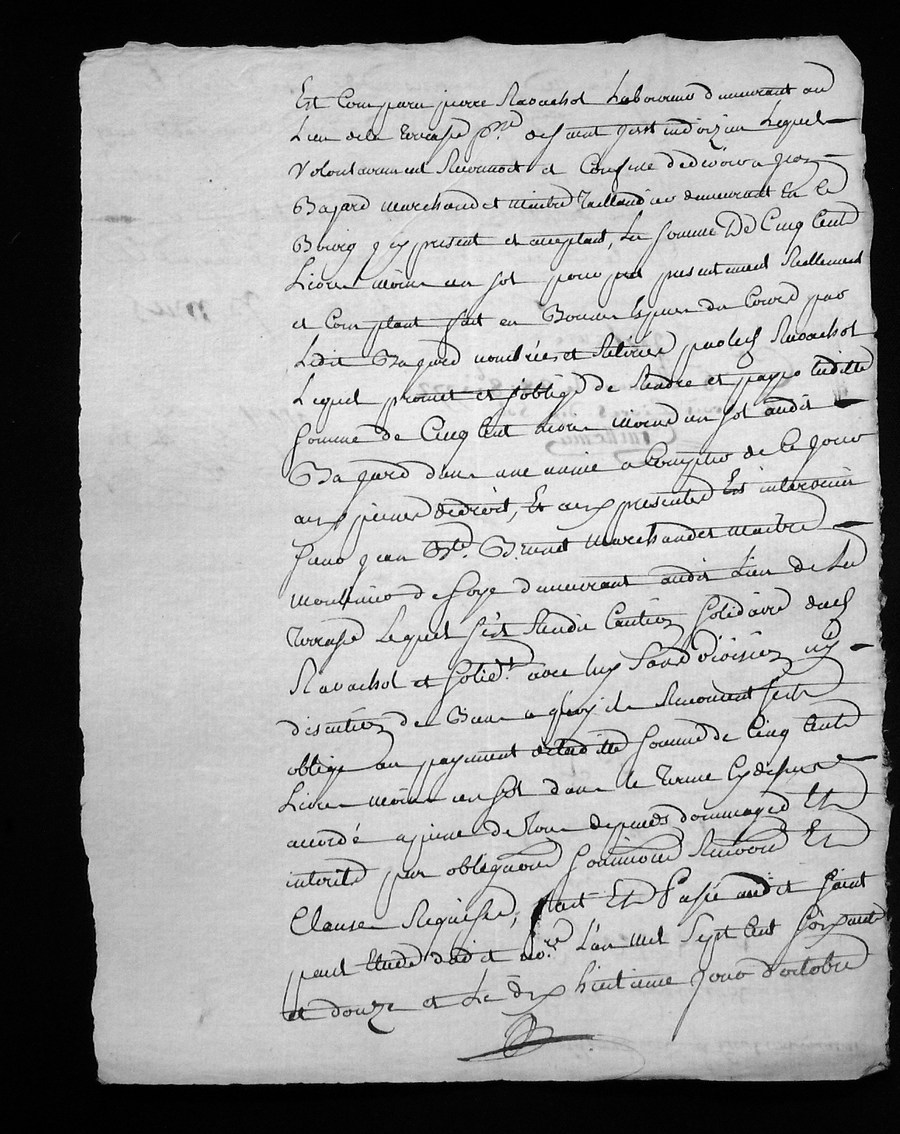 Est Comparu pierre Ravachol Laboureur demeurant au
Lieu de la terrasse p.sse de saint just indoizieu Lequel
Volontairement Reconnoit et Confesse de devoir a jean
Bajard marchand et maitre taillandier demeurant En ce
Bourg y present et acceptant, La somme De Cinq Cent
Livres moins un sol pour pret presentement Reellement
et Comptant fait en Bonnes Especes du Cours par
Ledit Bajard nombrées et Retirées par led Ravachol
Lequel promet et s'oblige de Rendre et payer laditte
somme de Cinq Cent livres moins un sol audit
Bajard dans une année a Compter de Ce jour
aux peines de droit, Et aux presentes Est intervenu
sieur jean Bte. Brunet marchand et maitre
moulinier de soye demeurant audit Lieu de La
terrasse Lequel s'est Rendu Caution solidaire dud
Ravachol et solid.t avec luy sans division ny
discution de Biens a quoy il Renoncent s'est
oblige au payment de laditte somme de Cinq Cents
Livres moins un sol dans le terme Cy dessus
accordé a peine de tous depends dommages Et
interets par obligations soumissions Renvois Et
Clauses Requises, fait Et Passé audit saint
paul Etude dudit no.re L'an mil Sept Cent soixante
et douze et Le dix huitieme jour d'octobre